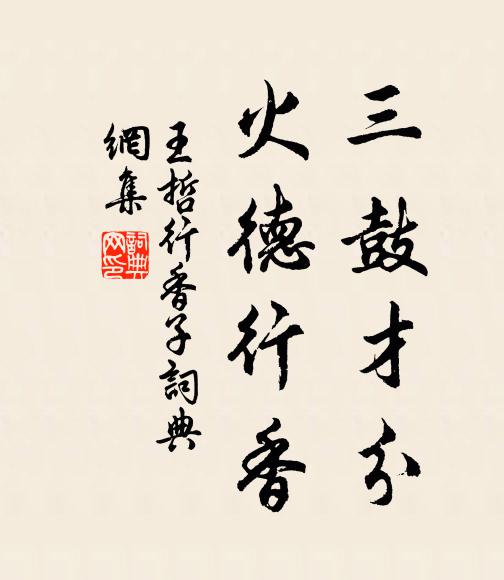 三鼓才分
火德行香
王哲行香子詞典
網集
詞典
网印